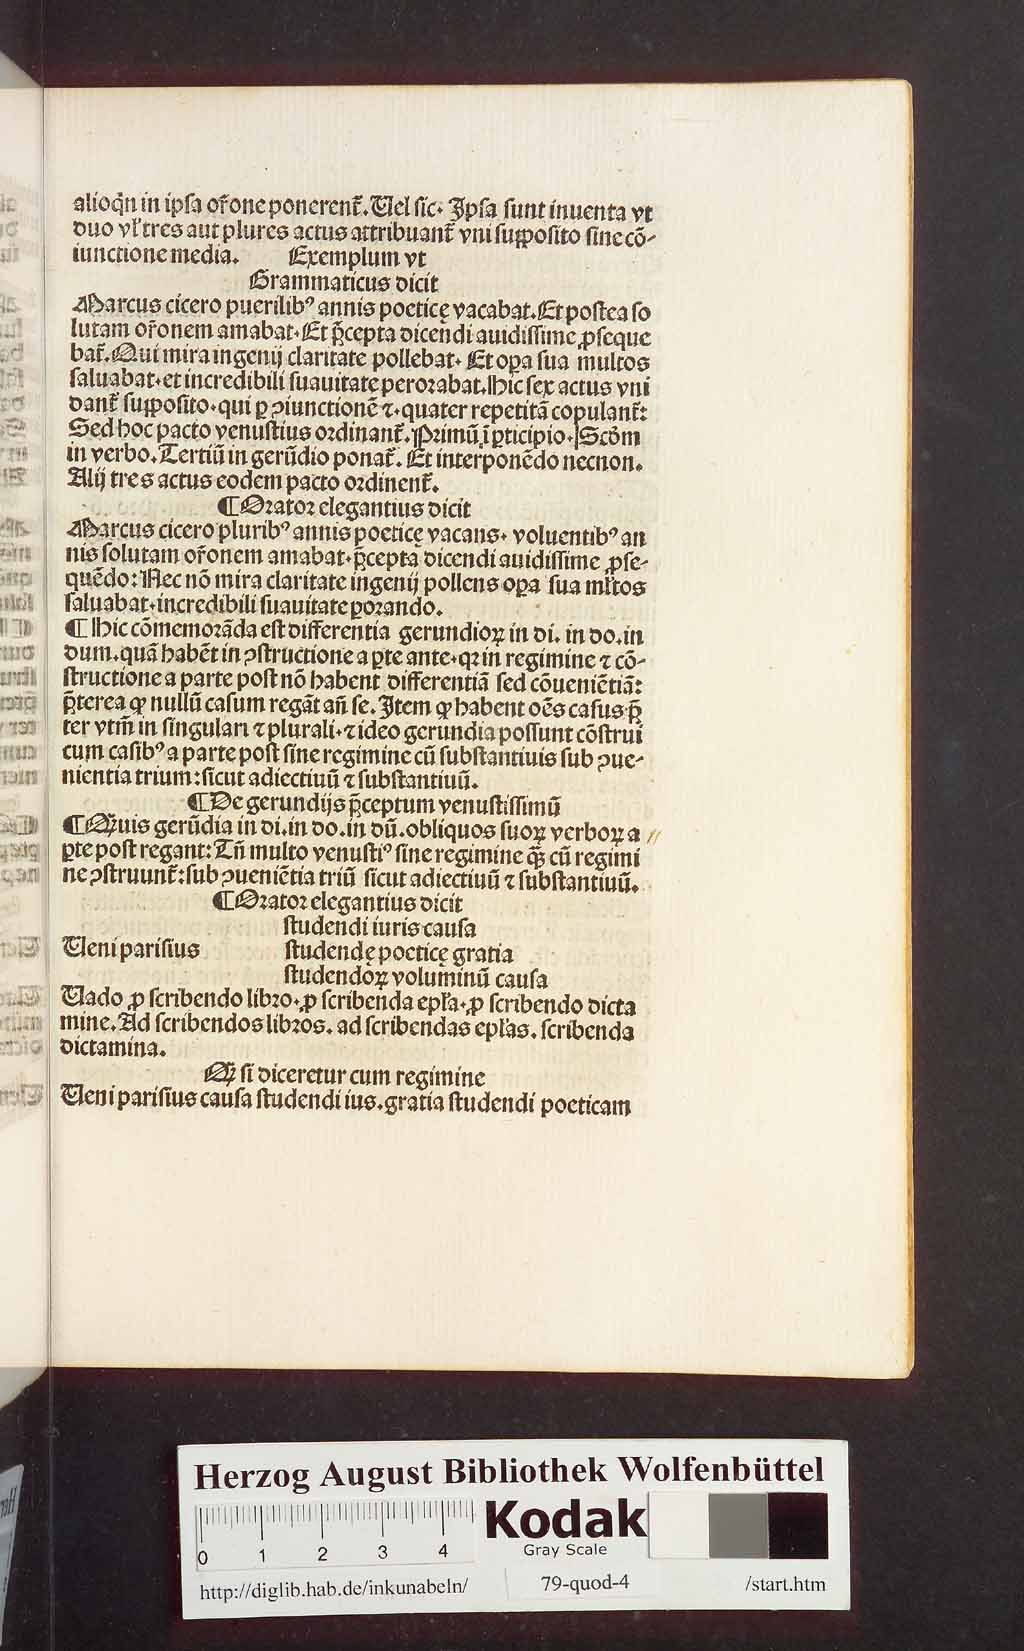 alioq̄n in ipſa or̄one ponerent̄. Uel ſic. Ipſa ſunt inuenta vt
duo vl̄ tres aut plures actus attribuant̄ vni ſuꝑpoſito ſine cō-
iunctione media. Exemplum vt
Grammaticus dicit
Marcus cicero puerilibꝰ annis poeticę vacabat. Et poſtea ſo
lutam or̄onem amabat. Et p̄cepta dicendi auidiſſime ꝓſeque
bat̄. Qui mira ingenij claritate pollebat. Et oꝑa ſua multos
ſaluabat. et incredibili ſuauitate perorabat. Hic ſex actus vni
dant̄ ſuꝑpoſito. qui ꝑ ꝯiunctionē ⁊. quater repetitā copulant̄:
Sed hoc pacto venuſtius ordinant̄. Primū ī ꝑticipio. Scd̄m
in verbo. Tertiū in gerūdio ponat̄. Et interponēdo necnon.
Alij tres actus eodem pacto ordinent̄.
¶ Orator elegantius dicit
Marcus cicero pluribꝰ annis poeticę vacans. voluentibꝰ an
nis ſolutam or̄onem amabat. p̄cepta dicendi auidiſſime ꝓſe-
quēdo: Nec nō mira claritate ingenij pollens oꝑa ſua ml̄tos
ſaluabat. incredibili ſuauitate ꝑorando.
¶ Hic cōmemorāda eſt differentia gerundioꝝ in di. in do. in
dum. quā habēt in ꝯſtructione a ꝑte ante. qꝛ in regimine ⁊ cō-
ſtructione a parte poſt nō habent differentiā ſed cōueniētiā:
p̄terea ꝙ nullū caſum regāt an̄ ſe. Item ꝙ habent oēs caſus p̄
ter vtm̄ in ſingulari ⁊ plurali. ⁊ ideo gerundia poſſunt cōſtrui
cum caſibꝰ a parte poſt ſine regimine cū ſubſtantiuis ſub ꝯue-
nientia trium: ſicut adiectiuū ⁊ ſubſtantiuū.
¶ De gerundijs p̄ceptum venuſtiſſimū
¶ Qꝫuis gerūdia in di. in do. in dū. obliquos ſuoꝝ verboꝝ a
ꝑte poſt regant: Tn̄ multo venuſtiꝰ ſine regimine qꝫ̄ cū regimi
ne ꝯſtruunt̄: ſub ꝯueniētia triū ſicut adiectiuū ⁊ ſubſtantiuū.
¶ Orator elegantius dicit
ſtudendi iuris cauſa
Ueni pariſius ſtudendę poeticę gratia
ſtudendoꝝ voluminū cauſa
Uado ꝓ ſcribendo libro. ꝓ ſcribenda epl̄a. ꝓ ſcribendo dicta
mine. Ad ſcribendos libros. ad ſcribendas epl̄as. ſcribenda
dictamina.
Qꝫ ſi diceretur cum regimine
Ueni pariſius cauſa ſtudendi ius. gratia ſtudendi poeticam
Herzog August Bibliothek Wolfenbüttel
0 1 2 3 4
Kodak
Gray Scale
http://diglib.hab.de/inkunabeln/ 79-quod-4 /start.htm